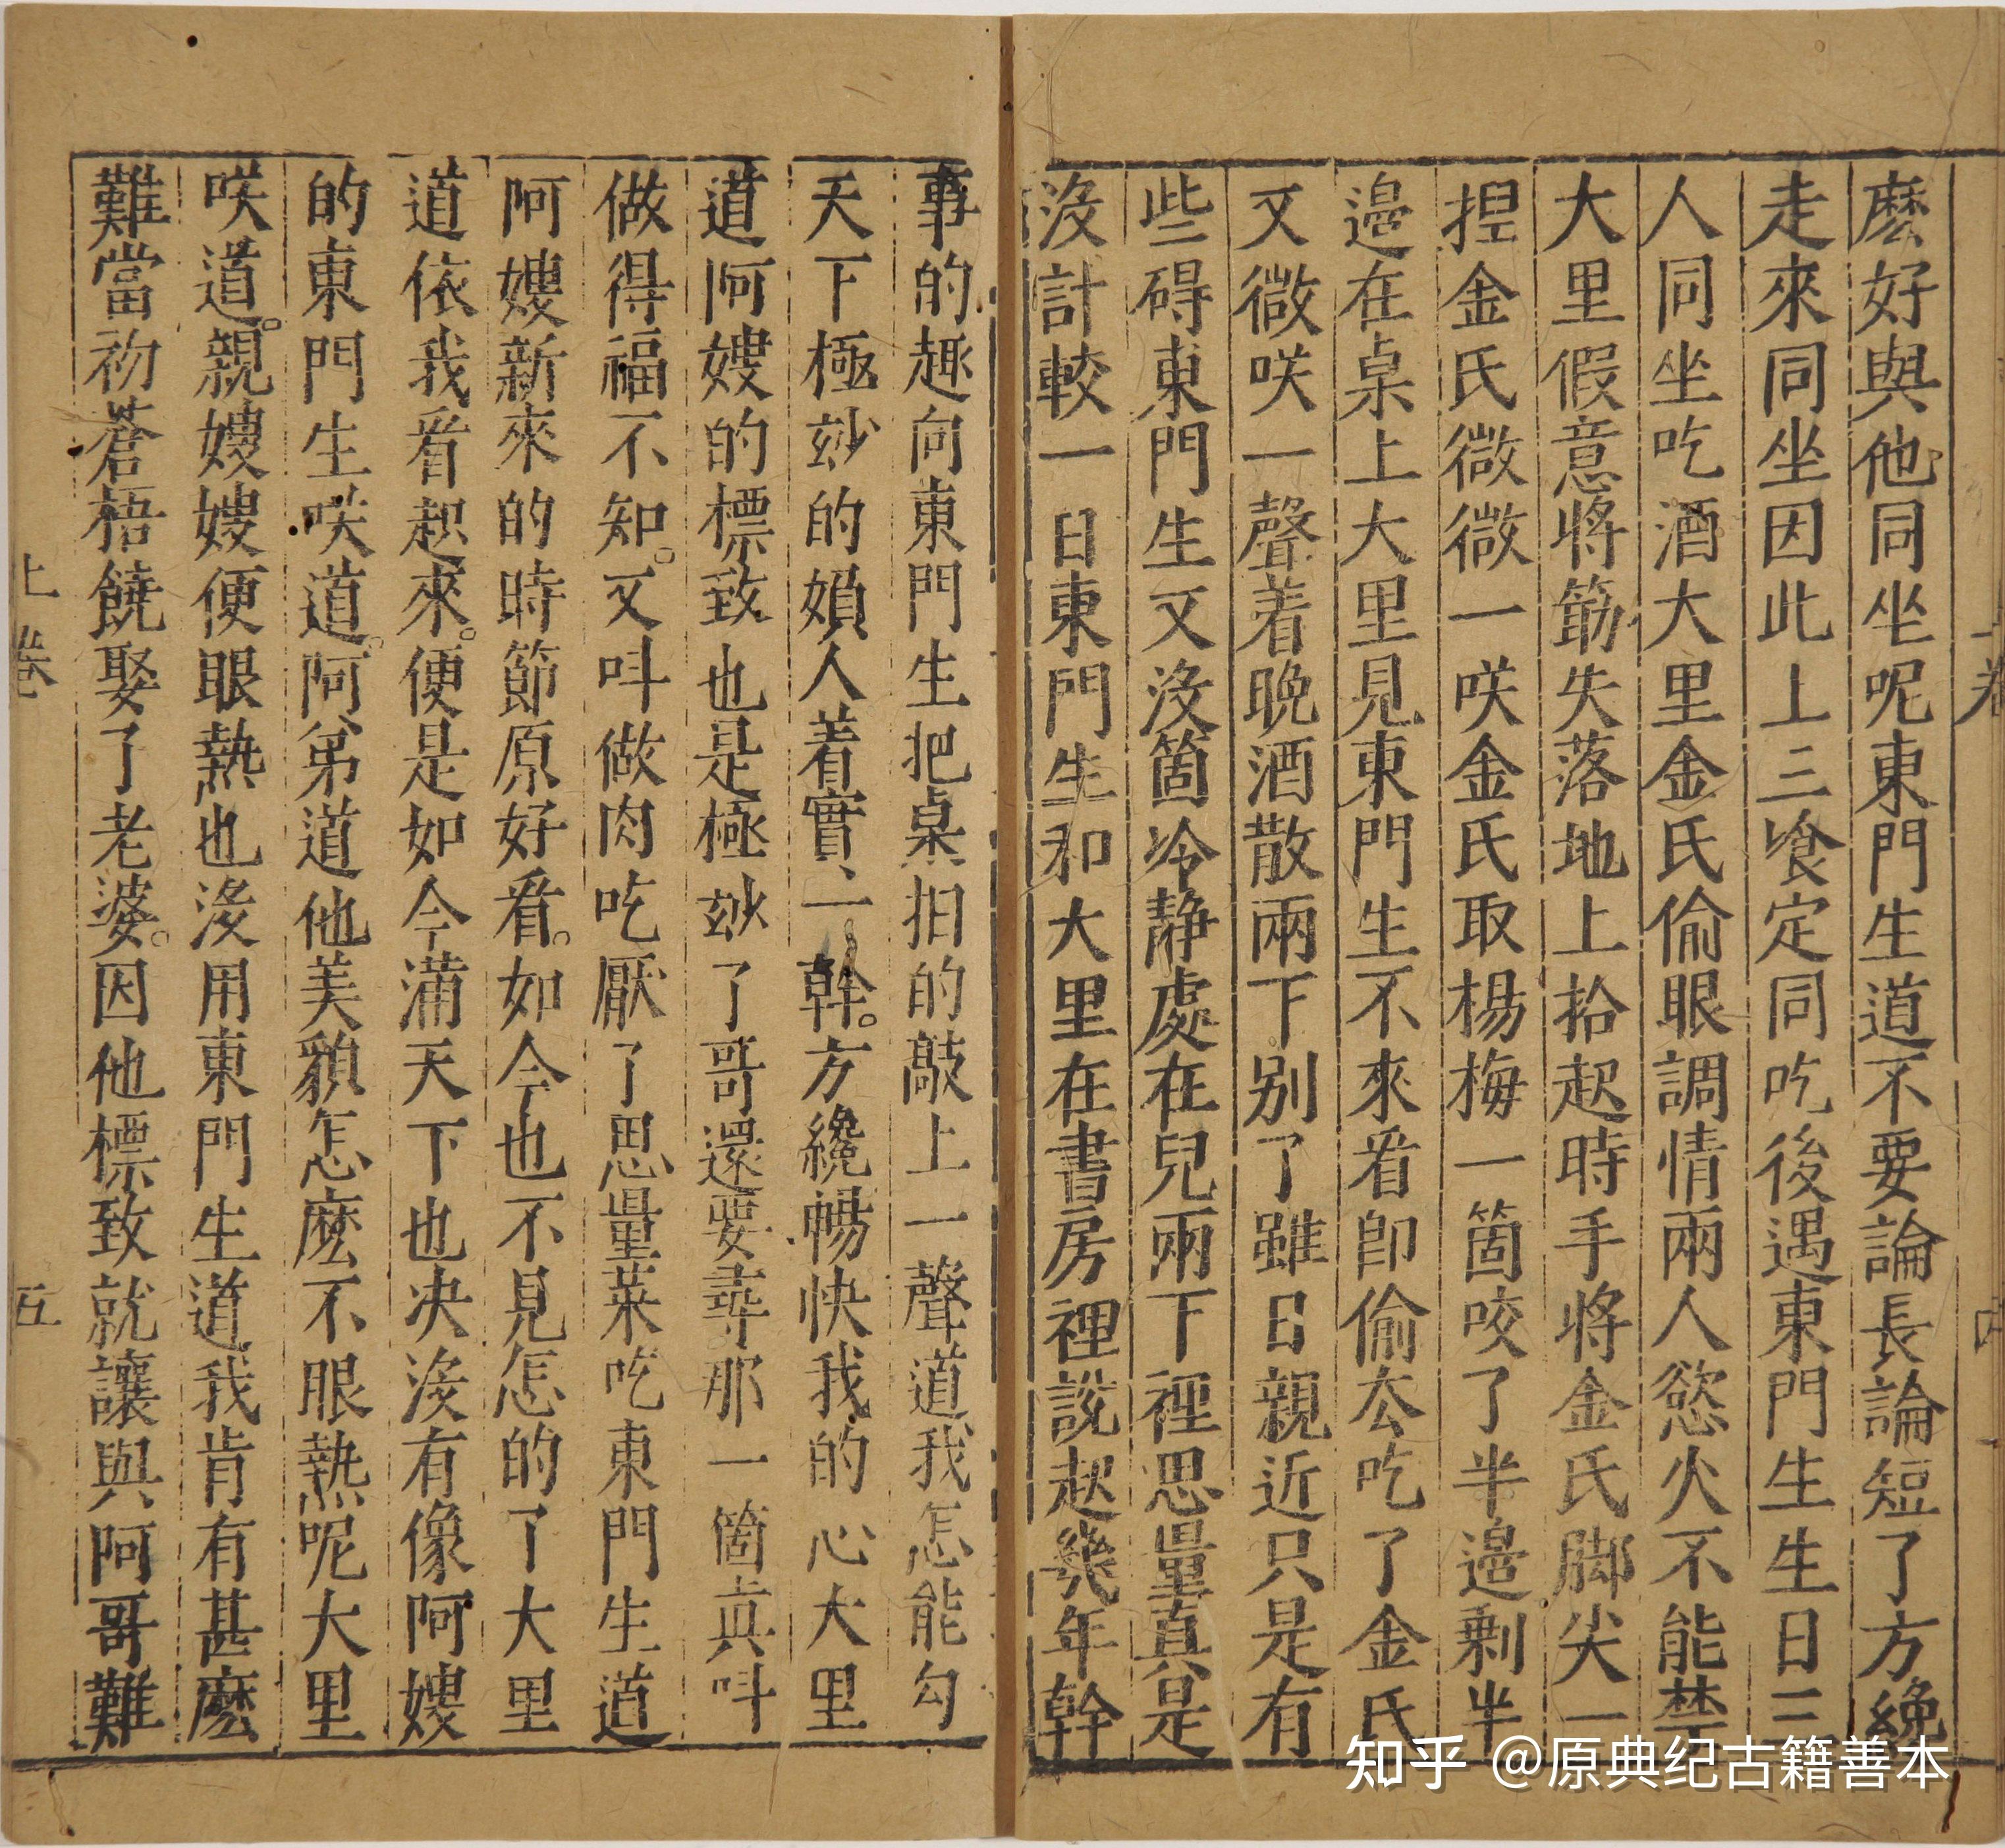 麽好與他同坐呢東門生道不要論長論短了方纔
走來同坐因此上三飡定同吃後遇東門生生日三
人同坐吃酒大里金氏偷眼調情兩人慾火不能禁
大里假意將筯失落地上拾起時手將金氏脚尖一
揑金氏微微一咲金氏取楊梅一箇咬了半邉剩半
邉在桌上大里見東門生不來看卽偷厺吃了金氏
又微咲一聲着晚酒散兩下别了雖日親近只是有
些碍東門生又没箇冷静處在兒兩下裡思量真是
没計較一日東門生和大里在書房裡說起幾年幹
事的趣向東門生把桌拍的敲上一聲道我怎能勾
天下極玅的媍人着實、一幹。方纔暢快我的心大里
道阿嫂的標致也是極玅了哥還要尋那一箇真呌
做得福不知。又呌做肉吃厭了思量菜吃東門生道
阿嫂新來的時節原好看。如今也不見怎的了大里
道依我看起來。便是如今滿天下也决没有像阿嫂
的東門生咲道。阿弟道他美貌怎麽不眼熱呢大里
咲道。親嫂嫂便眼熱也没用東門生道我肯有甚麽
難當初蒼梧饒娶了老婆。因他標致就讓與阿哥難
上卷
五
知乎 @原典纪古籍善本